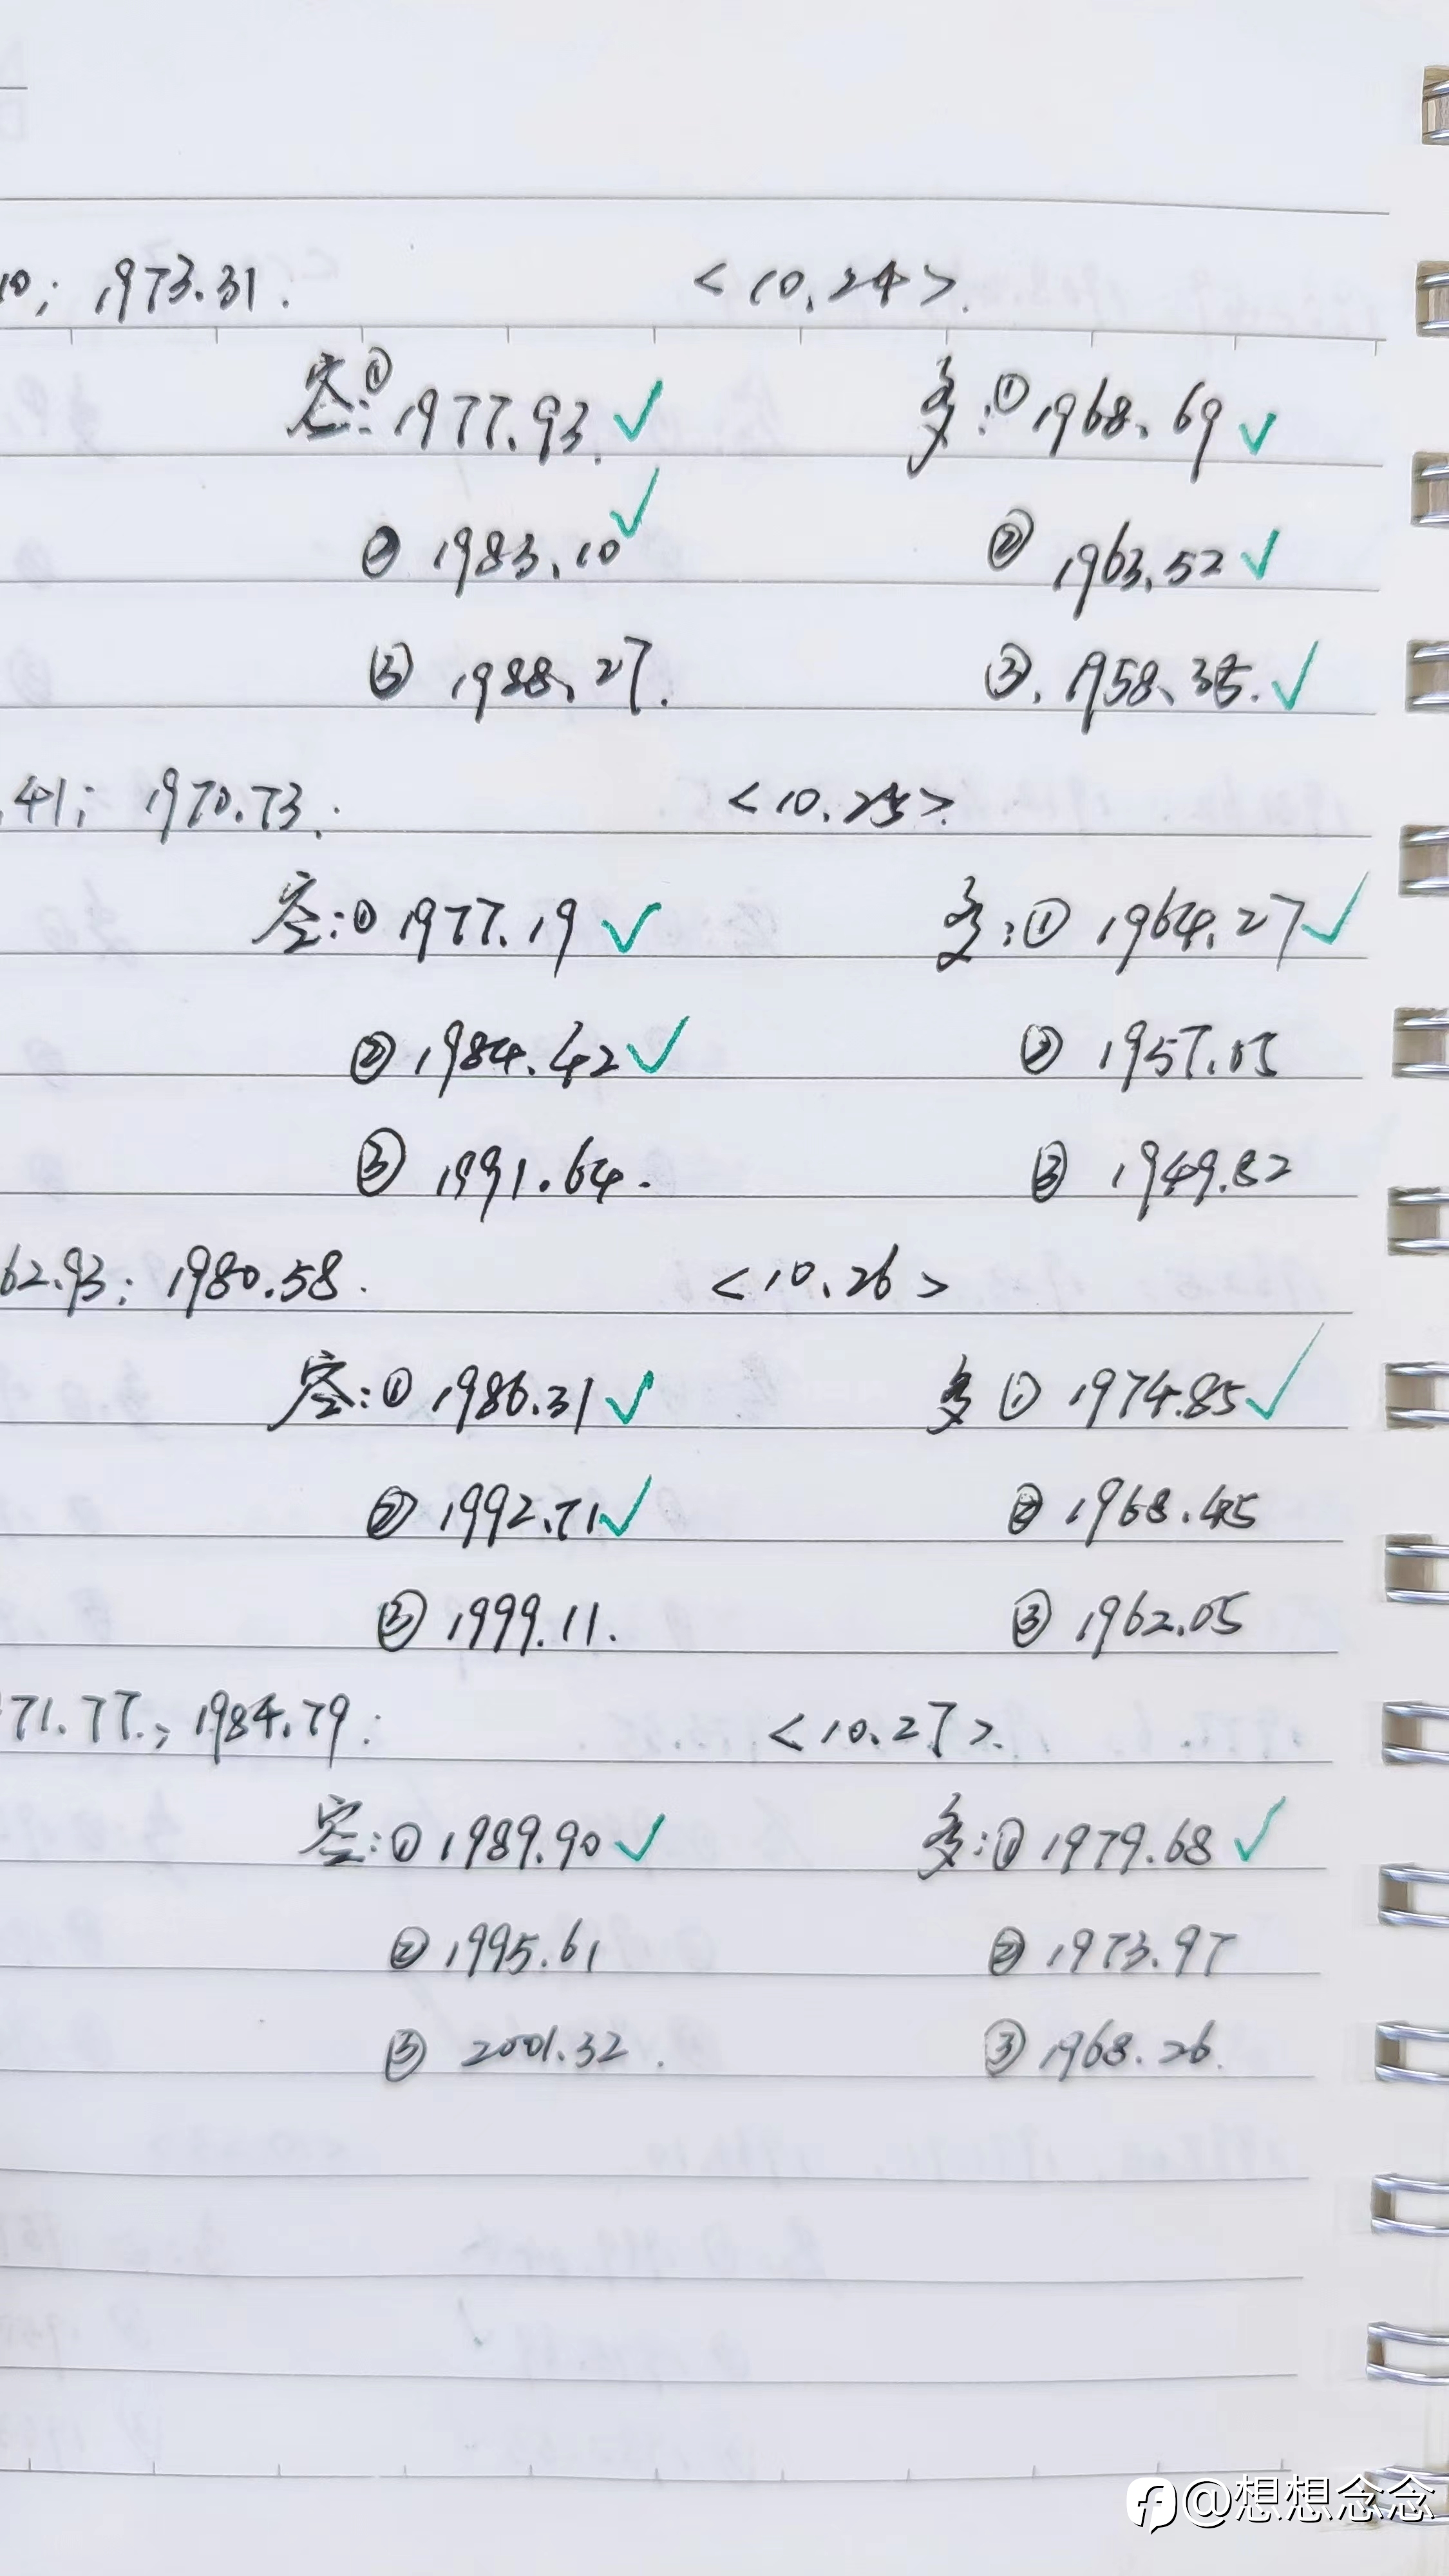 10; 1973.31. <10.24>.
空:① 1977.93. ✓ 多:① 1968.69 ✓
② 1983.10 ✓ ② 1963.52 ✓
③ 1988.27. ③. 1958.35. ✓
.41; 1970.73. <10.25>.
空:① 1977.19 ✓ 多:① 1964.27 ✓
② 1984.42 ✓ ② 1957.05
③ 1991.64. ③ 1949.82
62.93; 1980.58. <10.26>
空:① 1986.31 ✓ 多 ① 1974.85 ✓
② 1992.71 ✓ ② 1968.45
③ 1999.11. ③ 1962.05
71.77; 1984.79: <10.27>.
空:① 1989.90 ✓ 多:① 1979.68 ✓
② 1995.61 ② 1973.97
③ 2001.32. ③ 1968.26.
@想想念念